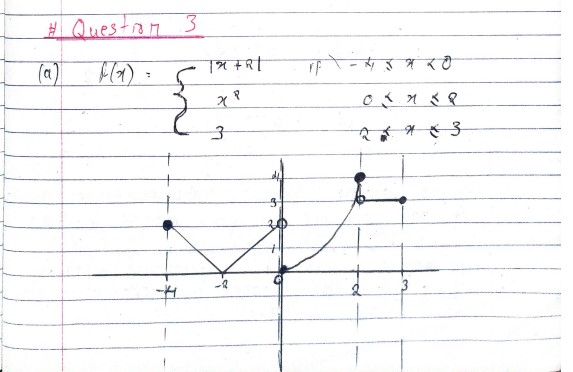 # Question 3
(a) f(x) = { |x+2| if -4 ≤ x < 0
x² 0 ≤ x ≤ 2
3 2 < x ≤ 3
4
3
2
1
0
-4 -2 2 3